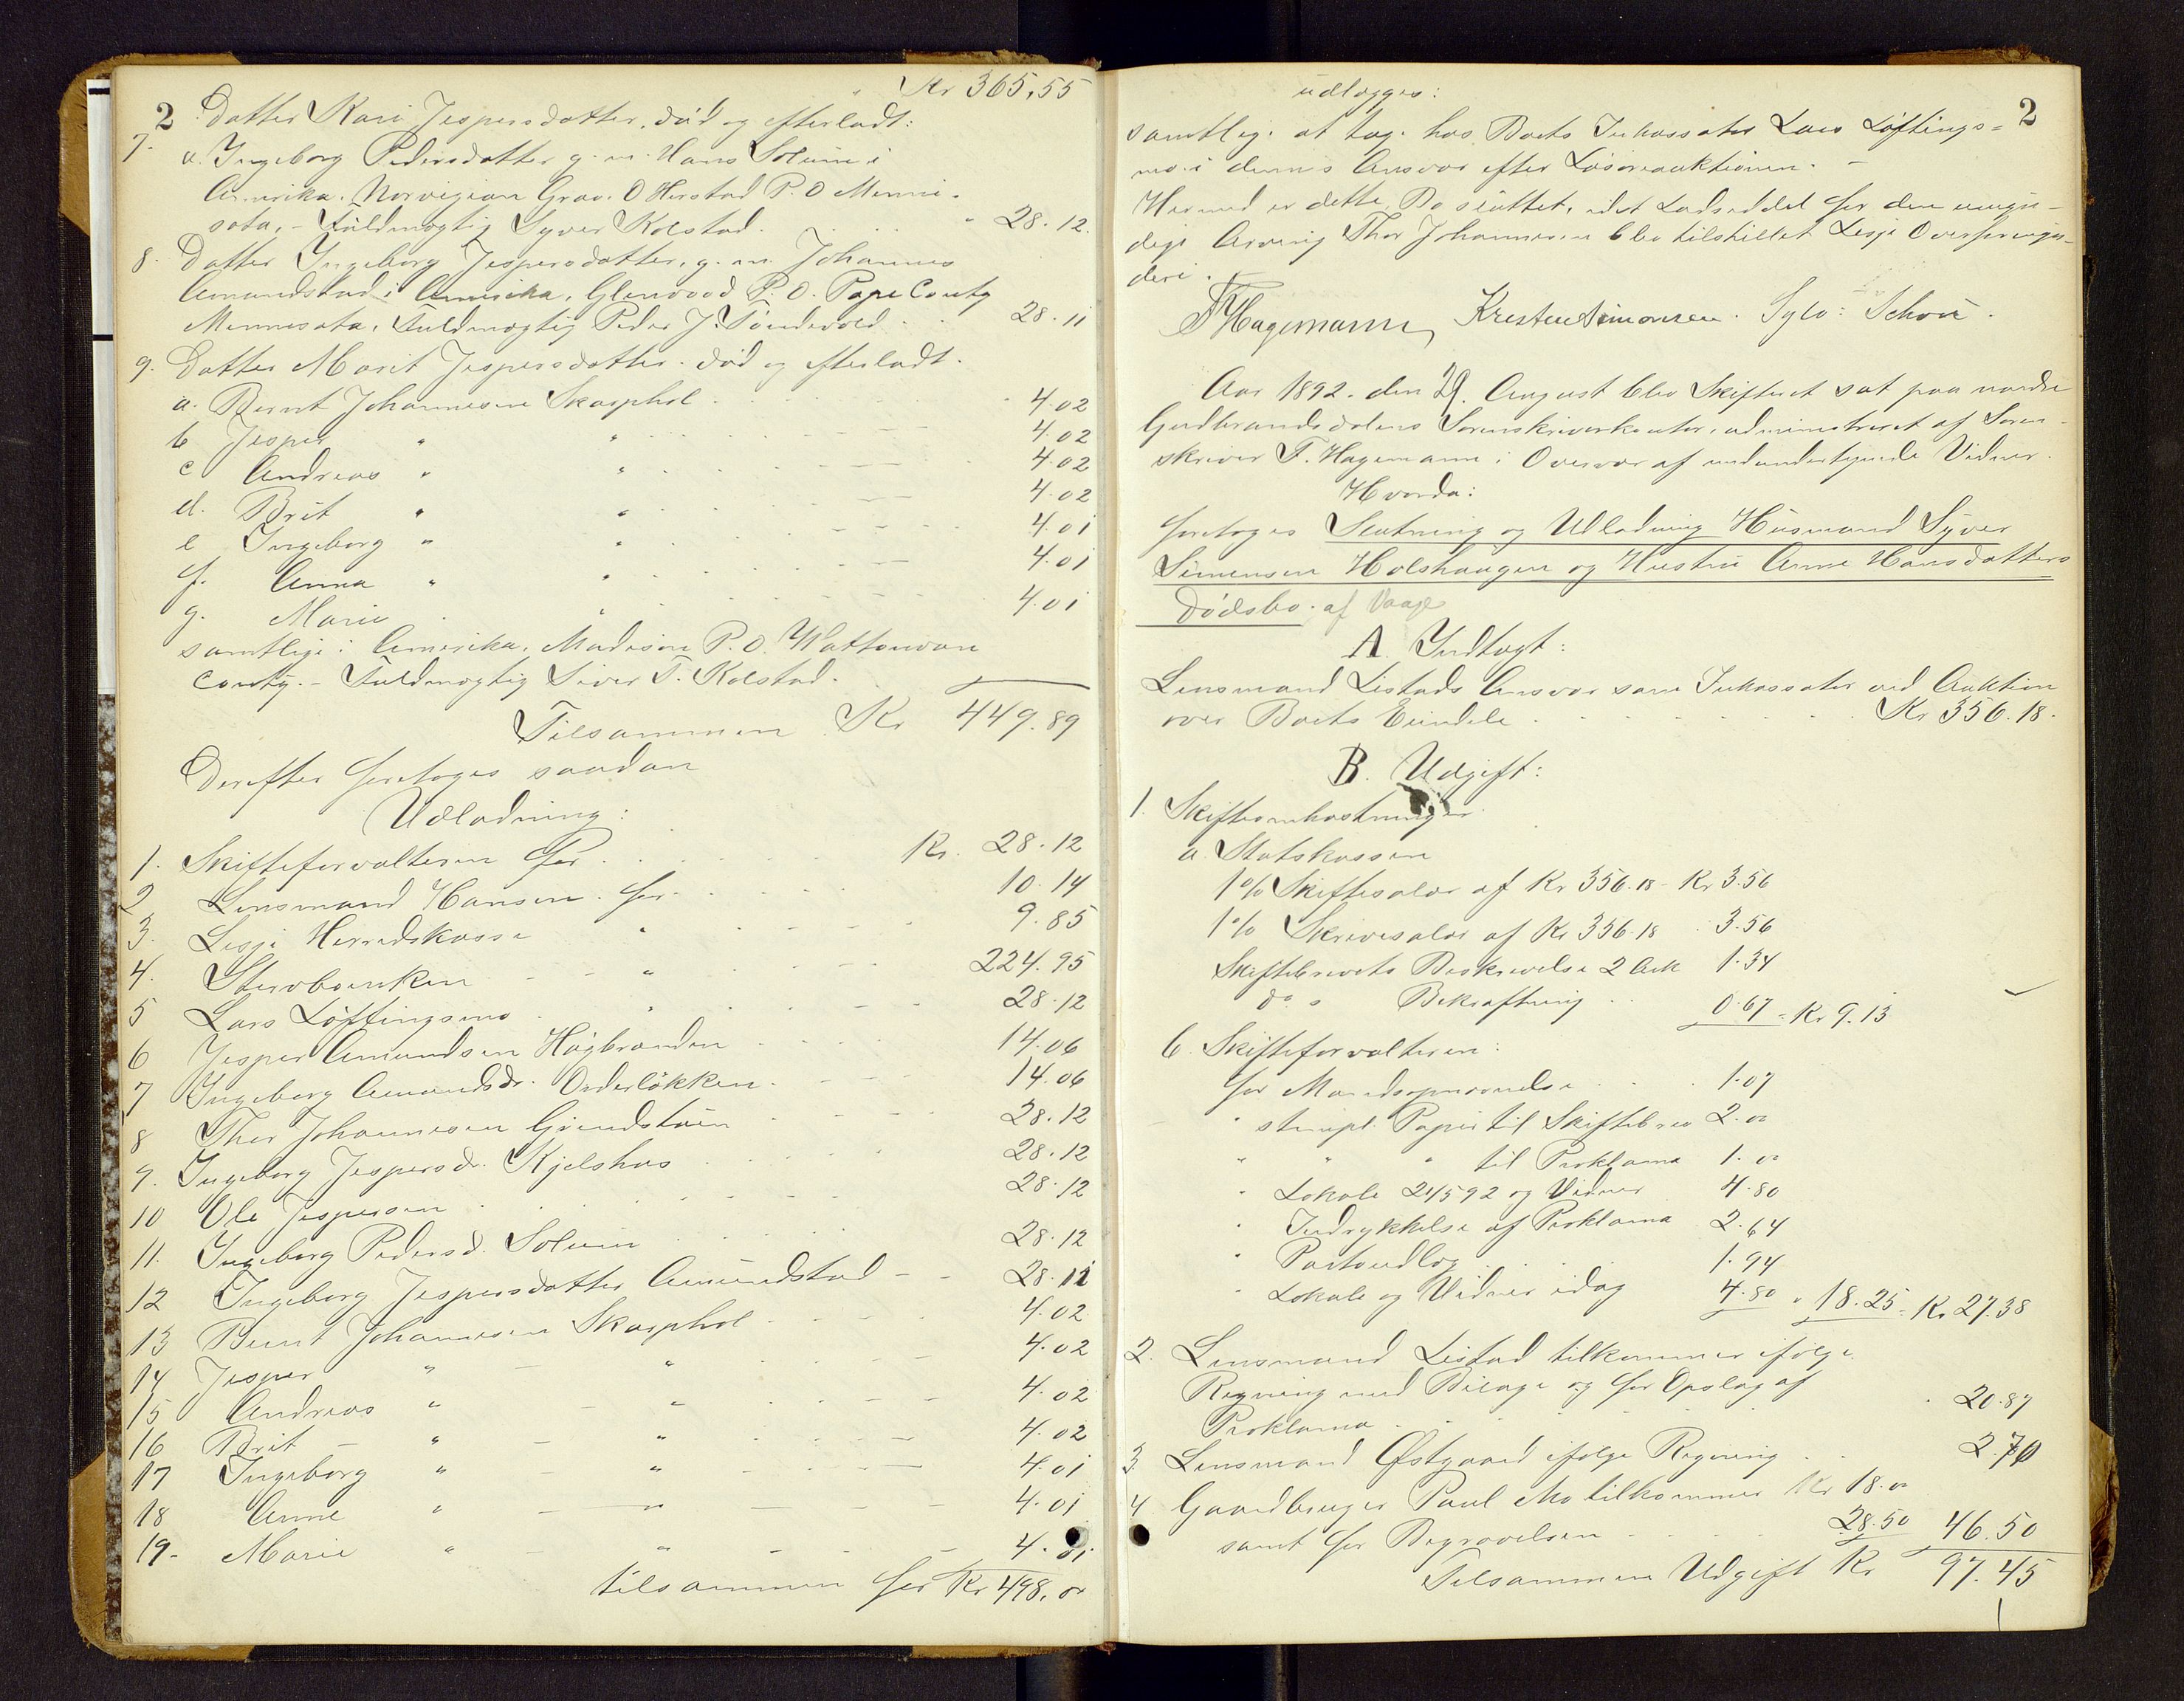 Kr 365,55
2
7. Datter Kari Jespersdatter, död og efterladt:
a. Ingeborg Pedersdatter g. m. Hans Solum i
Amerika. Norvegian Grov. O Herstad P. O Minne-
sota, - Fuldmægtig Syver Kolstad. " 28.12.
8. Datter Ingeborg Jespersdatter, g. m. Johannes
Amundstad i Amerika, Glenwood P. O. Pape Couty
Minnesota, Fuldmægtig Peder J. Töndevold 28.11
9. Datter Marit Jespersdatter. död og efterladt.
a. Bernt Johannesen Skarphol 4.02
b Jesper " " 4.02
c Andreas " " 4.02
d. Brit " " 4.02
e Ingeborg " " 4.01
f. Anna " " 4.01
g. Marie " 4.01
samtlige i Amerika, Madison P. O. Wattonvan
Couty. - Fuldmægtig Siver T. Kolstad.
Tilsammen Kr 449.89
Derefter foretoges saadan
Udlodning:
1. Skifteforvalteren for Kr. 28.12
2 Lensmand Hansen. for 10.14
3. Lesje Herredskasse " 9.85
4. Stervboenken " 224.95
5 Lars Löftingsmo " 28.12
6 Jesper Amundsen Högbranden 14.06
7 Ingeborg Amundsdr. Orderlökken 14.06
8 Thor Johannesen Grindstuen 28.12
9. Ingeborg Jespersdr. Kjelshus 28.12
10 Ole Jespersen 28.12
11. Ingeborg Pedersd. Solum 28.12
12 Ingeborg Jespersdatter Amundstad 28.11
13 Bernt Johannesen Skarphol 4.02
14 Jesper " " 4.02
15 Andreas " " 4.02
16 Brit " " 4.02
17 Ingeborg " " 4.01
18 Anne " " 4.01
19. Marie " " 4.01
tilsammen for Kr 498.00
udlægges: 2
samtlige at tage hos Boets Inkassator Lars Löftings=
mo i dennes Ansvar efter Lösöreauktionen. -
Hermed er dette Bo sluttet, idet Lodseddel for den umyn-
dige Arving Thor Johannesen blev tilstillet Lesje Overformyn-
deri.
T Hagemann Kresten Simonsen. Sylv: Schou.
Aar 1892. den 29. August blev Skifteret sat paa nordre
Gudbrandsdalens Sorenskriverkontor, administreret af Soren-
skriver T. Hagemann i Overvær af medundertegnede Vidner.
Hvorda:
foretoges Slutning og Udlodning Husmand Syver
Simensen Holshaugen og Hustru Anne Hansdatters
Dødsbo. af Vaage
A Indtægt:
Lensmand Listads Ansvar som Inkassator ved Auktion
over Boets Eiendele Kr 356.18.
B. Udgift:
1. Skifteomkostninger
a Statskassen
1% Skiftesalær af Kr 356.18 - Kr 3.56
1% Skrivesalær af Kr 356.18 3.56
Skiftebrevets Beskrivelse 2 Ark 1.34
do s Bekræftning 0.67 = Kr 9.13
b. Skifteforvalteren:
for Mandsopnævnelse 1.07
" stempl. Papir til Skiftebrev 2.00
" " " til Proklama 1.00
" Lokale 24/5 92 og Vidner 4.80
" Indrykkelse af Proklama 2.64
" Portoudlæg 1.94
" Lokale og Vidner idag 4.80 " 18.25 = Kr 27.38
2. Lensmand Listad tilkommer ifølge
Regning med Bilage og for Opslag af
Proklama 20.87
3. Lensmand Østgaard ifølge Regning 2.70
4 Gaardbruger Paul Mo tilkommer Kr 18.00
samt for Begravelsen 28.50 46.50
Tilsammen Udgift Kr 97.45